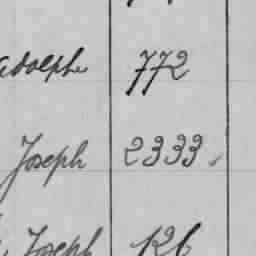 Adolphe 772
Joseph 2333
Joseph 126